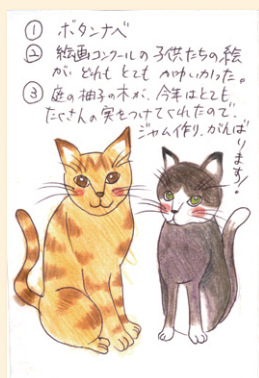 ① ボタンナベ
② 絵画コンクールの子供たちの絵
が、どれも とても かわいかった。
③ 庭の柚子の木が、今年はとても、
たくさんの実をつけてくれたので、
ジャム作り、がんばります！